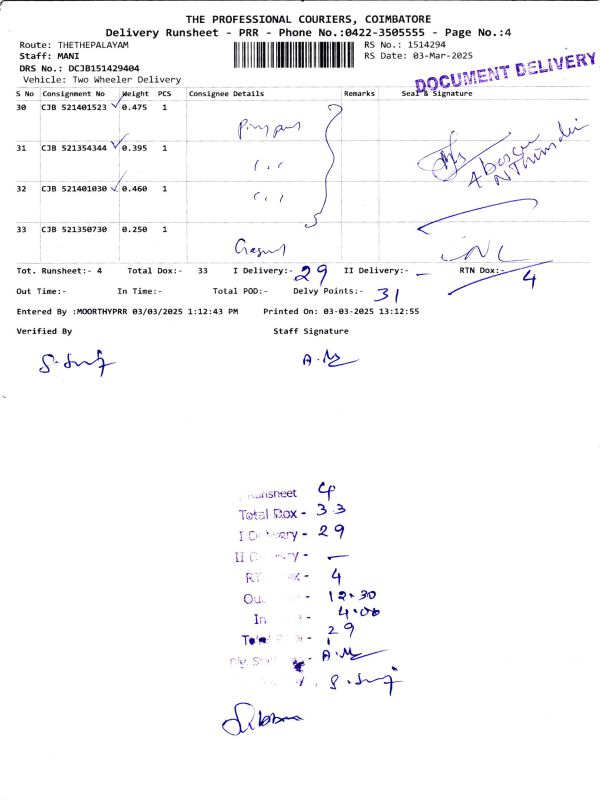 THE PROFESSIONAL COURIERS, COIMBATORE
Delivery Runsheet - PRR - Phone No.:0422-3505555 - Page No.:4
Route: THETHEPALAYAM RS No.: 1514294
Staff: MANI RS Date: 03-Mar-2025
DRS No.: DCJB151429404
Vehicle: Two Wheeler Delivery
DOCUMENT DELIVERY
S No Consignment No Weight PCS Consignee Details Remarks Seal & Signature
30 CJB 521401523 0.475 1
31 CJB 521354344 0.395 1
32 CJB 521401030 0.460 1
33 CJB 521350730 0.250 1
Tot. Runsheet:- 4 Total Dox:- 33 I Delivery:- 29 II Delivery:- — RTN Dox:- 4
Out Time:- In Time:- Total POD:- Delvy Points:- 31
Entered By :MOORTHYPRR 03/03/2025 1:12:43 PM Printed On: 03-03-2025 13:12:55
Verified By Staff Signature
Runsheet 4
Total Dox - 33
I Delivery - 29
II - —
4
12.30
In - 4.00
Total - 29